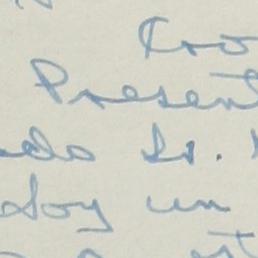 Cro
Present
do Sr.
Soy un